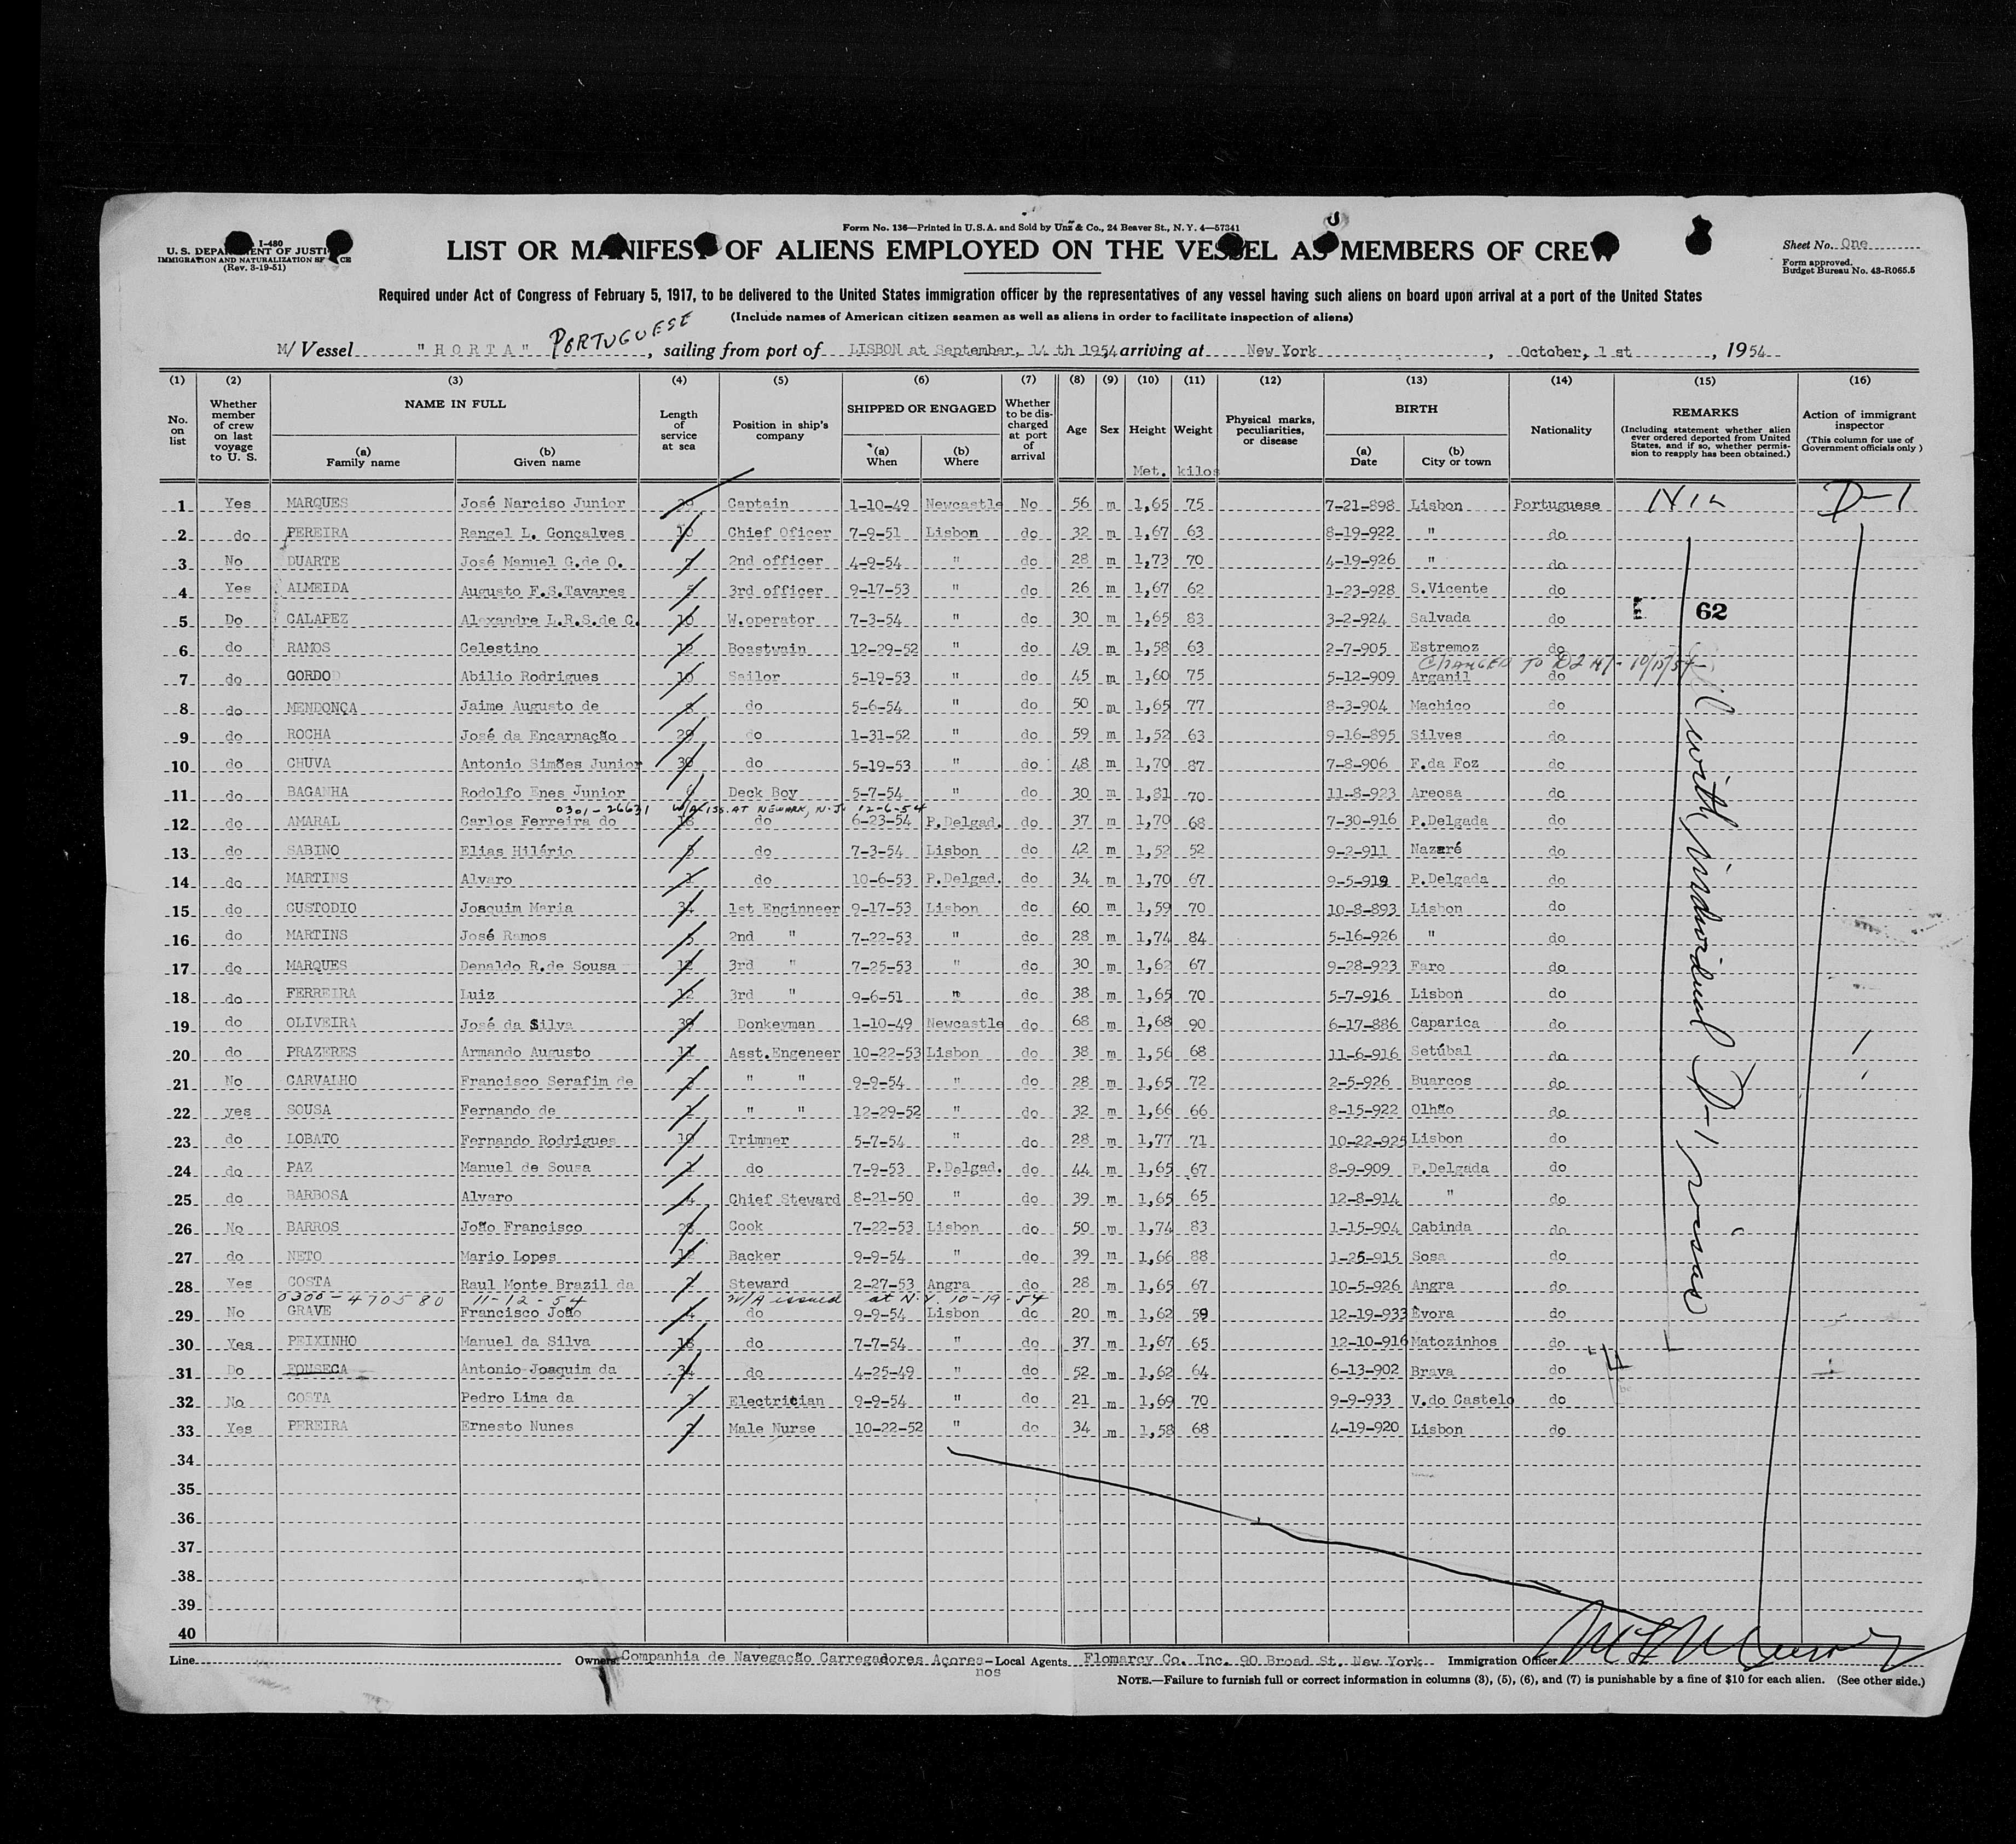 Form No. 136—Printed in U.S.A. and Sold by Unz & Co., 24 Beaver St., N. Y. 4—57341
I-480
U. S. DEPARTMENT OF JUSTICE
IMMIGRATION AND NATURALIZATION SERVICE
(Rev. 3-19-51)
LIST OR MANIFEST OF ALIENS EMPLOYED ON THE VESSEL AS MEMBERS OF CREW
Sheet No. One
Form approved.
Budget Bureau No. 43-R065.5
Required under Act of Congress of February 5, 1917, to be delivered to the United States immigration officer by the representatives of any vessel having such aliens on board upon arrival at a port of the United States
(Include names of American citizen seamen as well as aliens in order to facilitate inspection of aliens)
M/ Vessel "HORTA" PORTUGUESE, sailing from port of LISBON at September, 14 th 1954 arriving at New York, October, 1 st, 1954
(1) (2) (3) (4) (5) (6) (7) (8) (9) (10) (11) (12) (13) (14) (15) (16)
No. on list
Whether member of crew on last voyage to U. S.
NAME IN FULL
(a) Family name
(b) Given name
Length of service at sea
Position in ship's company
SHIPPED OR ENGAGED
(a) When
(b) Where
Whether to be discharged at port of arrival
Age
Sex
Height
Met.
Weight
kilos
Physical marks, peculiarities, or disease
BIRTH
(a) Date
(b) City or town
Nationality
REMARKS
(Including statement whether alien ever ordered deported from United States, and if so, whether permission to reapply has been obtained.)
Action of immigrant inspector
(This column for use of Government officials only)
1 Yes MARQUES José Narciso Junior Captain 1-10-49 Newcastle No 56 m 1,65 75 7-21-898 Lisbon Portuguese D-1
2 do PEREIRA Rangel L. Gonçalves 10 Chief Oficer 7-9-51 Lisbon do 32 m 1,67 63 8-19-922 " do
3 No DUARTE José Manuel G.de O. 7 2nd officer 4-9-54 " do 28 m 1,73 70 4-19-926 " do
4 Yes ALMEIDA Augusto F.S.Tavares 5 3rd officer 9-17-53 " do 26 m 1,67 62 1-23-928 S.Vicente do
5 Do CALAPEZ Alexandre L.R.S.de C. 10 W.operator 7-3-54 " do 30 m 1,65 83 3-2-924 Salvada do 62
6 do RAMOS Celestino 12 Boastwain 12-29-52 " do 49 m 1,58 63 2-7-905 Estremoz do
CHANGED TO D2 10/11/54
7 do GORDO Abilio Rodrigues 10 Sailor 5-19-53 " do 45 m 1,60 75 5-12-909 Arganil do
8 do MENDONÇA Jaime Augusto de 8 do 5-6-54 " do 50 m 1,65 77 8-3-904 Machico do
9 do ROCHA José da Encarnação 29 do 1-31-52 " do 59 m 1,52 63 9-16-895 Silves do
10 do CHUVA Antonio Simões Junior 30 do 5-19-53 " do 48 m 1,70 87 7-8-906 F.da Foz do
11 do BAGANHA Rodolfo Enes Junior Deck Boy 5-7-54 " do 30 m 1,81 70 11-8-923 Areosa do
0301-26631 W/A ISS. AT NEWARK, N.J. 12-6-54
12 do AMARAL Carlos Ferreira do 18 do 6-23-54 P.Delgad. do 37 m 1,70 68 7-30-916 P.Delgada do
13 do SABINO Elias Hilário 5 do 7-3-54 Lisbon do 42 m 1,52 52 9-2-911 Nazaré do
14 do MARTINS Alvaro 1 do 10-6-53 P.Delgad. do 34 m 1,70 67 9-5-919 P.Delgada do
15 do CUSTODIO Joaquim Maria 34 1st Enginneer 9-17-53 Lisbon do 60 m 1,59 70 10-8-893 Lisbon do
16 do MARTINS José Ramos 5 2nd " 7-22-53 " do 28 m 1,74 84 5-16-926 " do
17 do MARQUES Denaldo R.de Sousa 12 3rd " 7-25-53 " do 30 m 1,62 67 9-28-923 Faro do
18 do FERREIRA Luiz 12 3rd " 9-6-51 " do 38 m 1,65 70 5-7-916 Lisbon do
19 do OLIVEIRA José da Silva 39 Donkeyman 1-10-49 Newcastle do 68 m 1,68 90 6-17-886 Caparica do
20 do PRAZERES Armando Augusto 11 Asst.Engeneer 10-22-53 Lisbon do 38 m 1,56 68 11-6-916 Setúbal do
21 No CARVALHO Francisco Serafim de 2 " " 9-9-54 " do 28 m 1,65 72 2-5-926 Buarcos do
22 yes SOUSA Fernando de 2 " " 12-29-52 " do 32 m 1,66 66 8-15-922 Olhão do
23 do LOBATO Fernando Rodrigues 10 Trimmer 5-7-54 " do 28 m 1,77 71 10-22-925 Lisbon do
24 do PAZ Manuel de Sousa 1 do 7-9-53 P.Delgad. do 44 m 1,65 67 8-9-909 P.Delgada do
25 do BARBOSA Alvaro 4 Chief Steward 8-21-50 " do 39 m 1,65 65 12-8-914 " do
26 No BARROS João Francisco 28 Cook 7-22-53 Lisbon do 50 m 1,74 83 1-15-904 Cabinda do
27 do NETO Mario Lopes 12 Backer 9-9-54 " do 39 m 1,66 88 1-25-915 Sosa do
28 Yes COSTA Raul Monte Brazil da 2 Steward 2-27-53 Angra do 28 m 1,65 67 10-5-926 Angra do
0300-470580 11-12-54 W/A issued at N.Y. 10-19-54
29 No GRAVE Francisco João 4 do 9-9-54 Lisbon do 20 m 1,62 59 12-19-933 Évora do
30 Yes PEIXINHO Manuel da Silva 18 do 7-7-54 " do 37 m 1,67 65 12-10-916 Matozinhos do
31 Do FONSECA Antonio Joaquim da 34 do 4-25-49 " do 52 m 1,62 64 6-13-902 Brava do
32 No COSTA Pedro Lima da 3 Electrician 9-9-54 " do 21 m 1,69 70 9-9-933 V.do Castelo do
33 Yes PEREIRA Ernesto Nunes 2 Male Nurse 10-22-52 " do 34 m 1,58 68 4-19-920 Lisbon do
34
35
36
37
38
39
40
All with individual D-1 visas
Line Owners Companhia de Navegação Carregadores Açorea-nos Local Agents Flomarcy Co. Inc. 90 Broad St. New York Immigration Officer
NOTE.—Failure to furnish full or correct information in columns (3), (5), (6), and (7) is punishable by a fine of $10 for each alien. (See other side.)